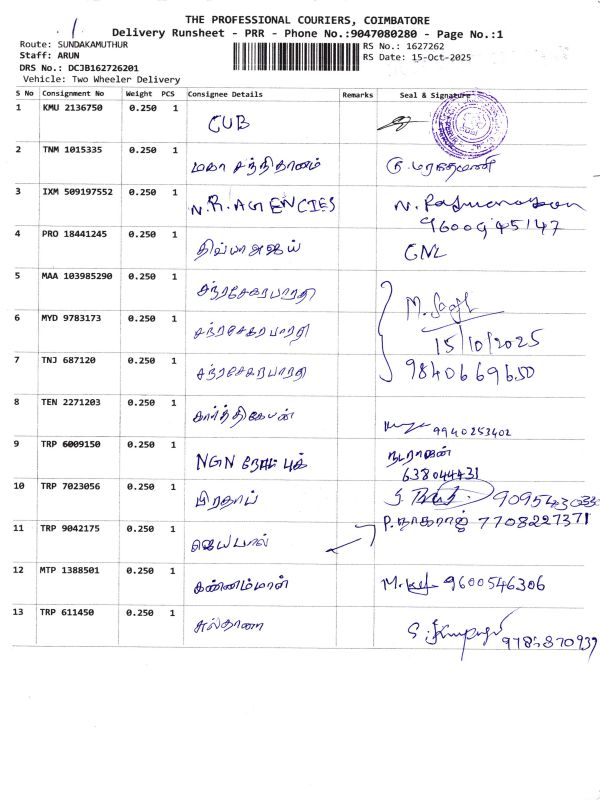 THE PROFESSIONAL COURIERS, COIMBATORE
Delivery Runsheet - PRR - Phone No.:9047080280 - Page No.:1
Route: SUNDAKAMUTHUR
Staff: ARUN
DRS No.: DCJB162726201
Vehicle: Two Wheeler Delivery
RS No.: 1627262
RS Date: 15-Oct-2025
S No Consignment No Weight PCS Consignee Details Remarks Seal & Signature
1 KMU 2136750 0.250 1 CUB
2 TNM 1015335 0.250 1 மகா சந்நிதானம்
3 IXM 509197552 0.250 1 N.R. AGENCIES N.
9600945147
4 PRO 18441245 0.250 1 திவ்யா அஜய் GNL
5 MAA 103985290 0.250 1 சந்ரசேகரபாரதி
6 MYD 9783173 0.250 1 சந்ரசேகரபாரதி M.
15/10/2025
7 TNJ 687120 0.250 1 சந்ரசேகரபாரதி 9840669650
8 TEN 2271203 0.250 1 கார்த்திகேயன் 9940253402
9 TRP 6009150 0.250 1 NGN நோட் புக் நடராஜன்
638044431
10 TRP 7023056 0.250 1 பிரதாப் S.
11 TRP 9042175 0.250 1 ஜெயபால் P. நாகராஜ் 7708227371
12 MTP 1388501 0.250 1 கண்ணம்மாள் M. 9600546306
13 TRP 611450 0.250 1 சுல்தானா S.